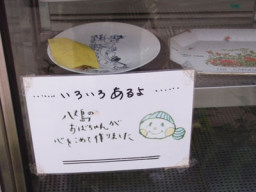 ……いろいろあるよ……
八島の
おばちゃんが
心をこめて作りました